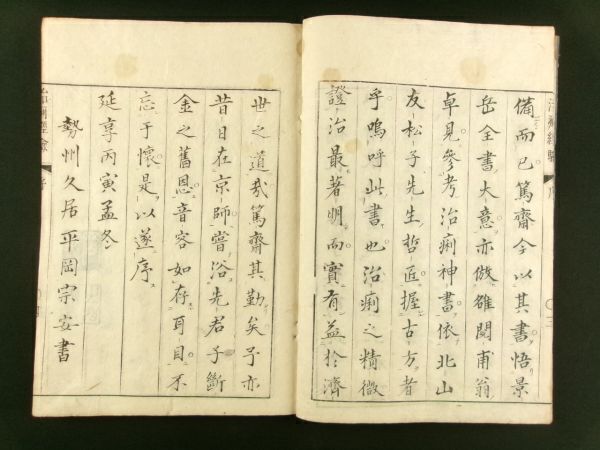 備而已篤齋今以其書悟景
岳全書大意亦倣雒聞甫翁
卓見參考治痢神書依北山
友松子先生哲匠握古方者
乎嗚呼此書也治痢之精微
證治最著明而實有益於濟
世之道哉篤齋其勤矣予亦
昔日在京師嘗浴先君子斷
金之舊恩音容如存耳目不
忘于懷是以遂序
延享丙寅孟冬
勢州久居平岡宗安書